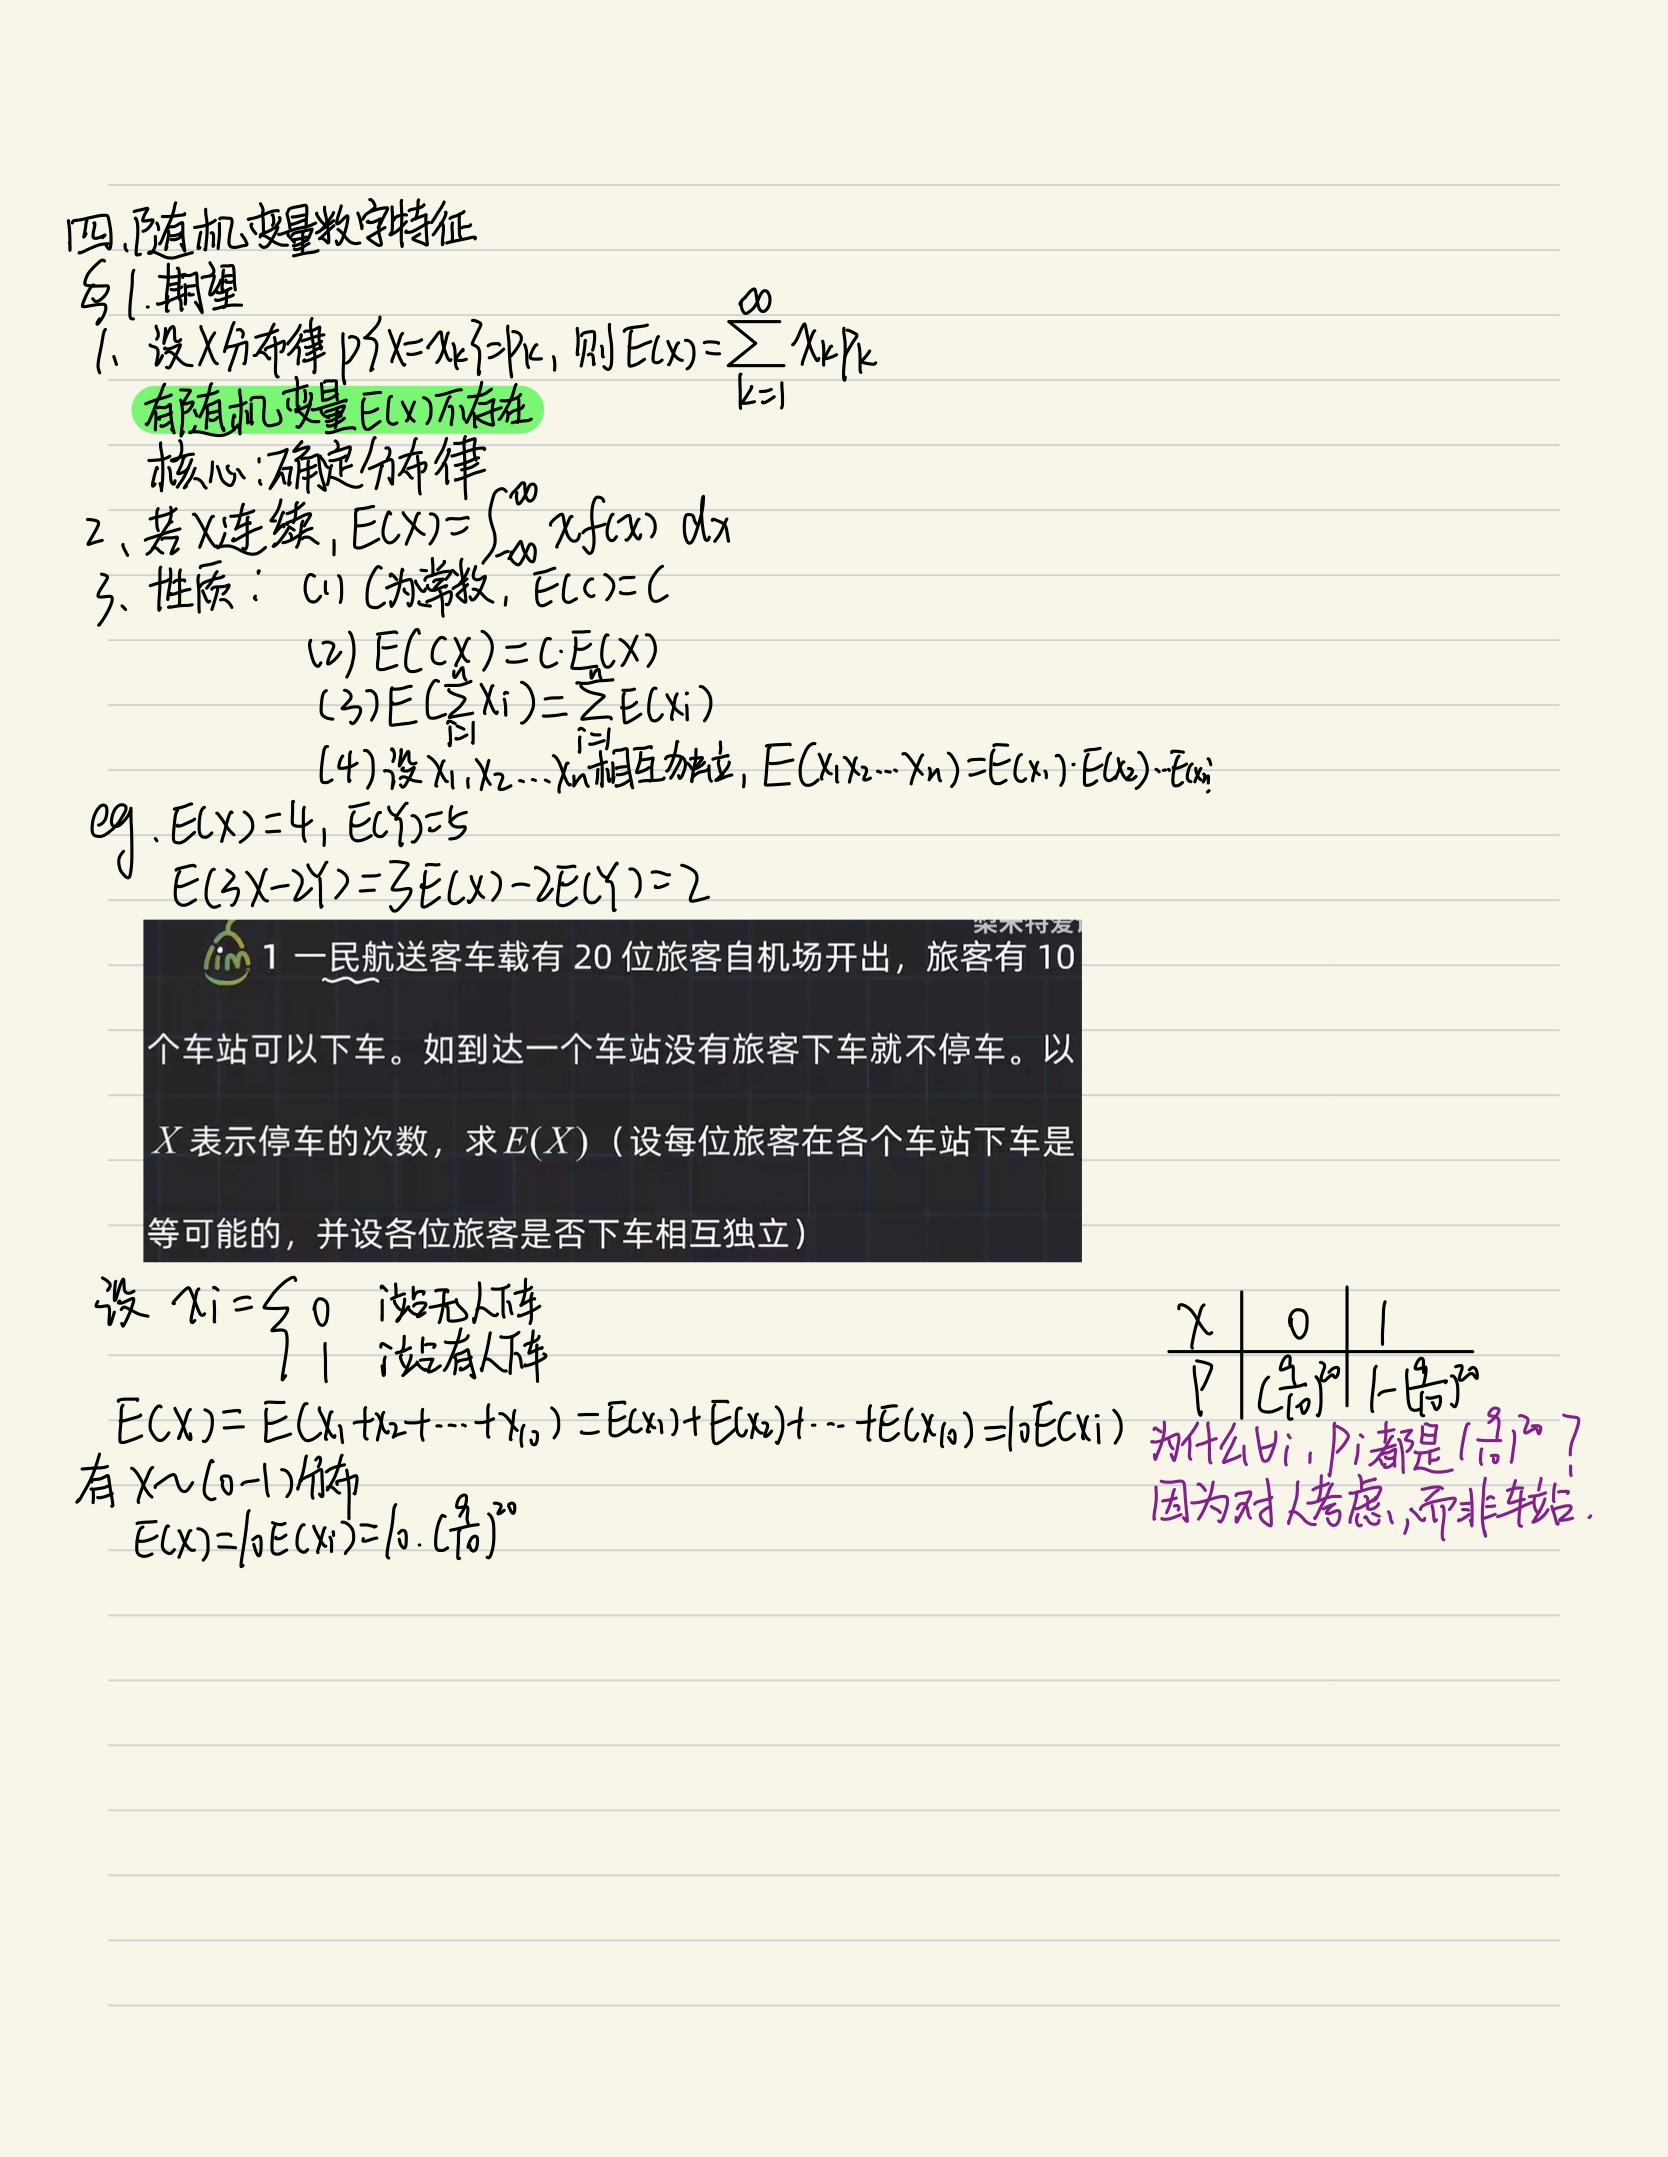 四、随机变量数字特征
§1.期望
1、设X分布律 P{X=xk}=Pk, 则E(X)=∑_{k=1}^{∞} xkpk
有随机变量E(X)不存在
核心:确定分布律
2、若X连续, E(X)=∫_{-∞}^{∞} xf(x) dx
3、性质: (1) C为常数, E(C)=C
(2) E(CX)=C·E(X)
(3) E(∑_{i=1}^{n} Xi)=∑_{i=1}^{n} E(Xi)
(4) 设X1,X2...Xn相互独立, E(X1X2...Xn)=E(X1)·E(X2)...E(Xn)
eg. E(X)=4, E(Y)=5
E(3X-2Y)=3E(X)-2E(Y)=2
lim 1 一民航送客车载有 20 位旅客自机场开出，旅客有 10
个车站可以下车。如到达一个车站没有旅客下车就不停车。以
X 表示停车的次数，求E(X)（设每位旅客在各个车站下车是
等可能的，并设各位旅客是否下车相互独立）
设 xi={ 0 i站无人下车
1 i站有人下车
X 0 1
P (9/10)^20 1-(9/10)^20
E(X)=E(X1+X2+...+X10)=E(X1)+E(X2)+...+E(X10)=10E(Xi)
为什么∀i, Pi都是(9/10)^20?
因为对人考虑,而非车站.
有X~(0-1)分布
E(X)=10E(Xi)=10·(9/10)^20